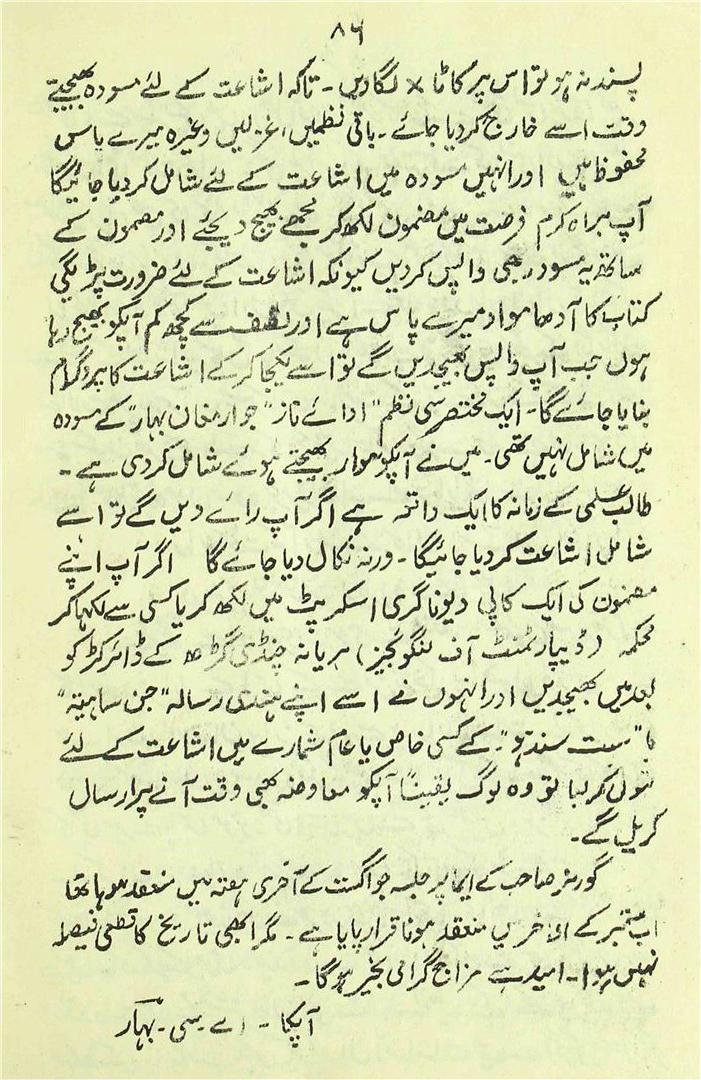 ۸۶
پسند نہ ہو تو اس پر کاٹا × لگا دیں ۔ تاکہ اشاعت کے لئے مسودہ بھیجتے
وقت اسے خارج کر دیا جائے ۔ باقی نظمیں، غزلیں وغیرہ میرے پاس
محفوظ ہیں اور انہیں مسودہ میں اشاعت کے لئے شامل کر دیا جائیگا
آپ براہ کرم فرصت میں مضمون لکھ کر مجھے بھیج دیجئے اور مضمون کے
ساتھ یہ مسودہ بھی واپس کر دیں کیونکہ اشاعت کے لئے ضرورت پڑیگی
کتاب کا آدھا مواد میرے پاس ہے اور نصف سے کچھ کم آپکو بھیج رہا
ہوں جب آپ واپس بھیجدیں گے تو اسے یکجا کر کے اشاعت کا پروگرام
بنایا جائے گا ۔ ایک مختصر سی نظم "ادائے ناز" جو ارمغان بہار" کے مسودہ
میں شامل نہیں تھی ۔ میں نے آپکو مواد بھیجتے ہوئے شامل کر دی ہے ۔
طالب علمی کے زمانہ کا ایک واقعہ ہے اگر آپ رائے دیں گے تو اسے
شامل اشاعت کر دیا جائیگا ۔ ورنہ نکال دیا جائے گا اگر آپ اپنے
مضمون کی ایک کاپی دیوناگری اسکرپٹ میں لکھ کر یا کسی سے لکھا کر
محکمہ (ڈیپارٹمنٹ آف لنگوئجیز) ہریانہ چنڈی گڑھ کے ڈائرکٹر کو
بعد میں بھیجدیں اور انہوں نے اسے اپنے ہندی رسالہ "جن ساہتیہ"
یا "سپت سندھو" ۔ کے کسی خاص یا عام شمارے میں اشاعت کے لئے
قبول کر لیا تو وہ لوگ یقیناً آپکو معاوضہ بھی وقت آنے پر ارسال
کریں گے ۔
گورنر صاحب کے ایما پر جلسہ جو اگست کے آخری ہفتہ میں منعقد ہو رہا تھا
اب ستمبر کے اواخر میں منعقد ہونا قرار پایا ہے ۔ مگر ابھی تاریخ کا قطعی فیصلہ
نہیں ہوا ۔ امید ہے مزاج گرامی بخیر ہو گا ۔
آپکا ۔ اے ۔ سی ۔ بہار